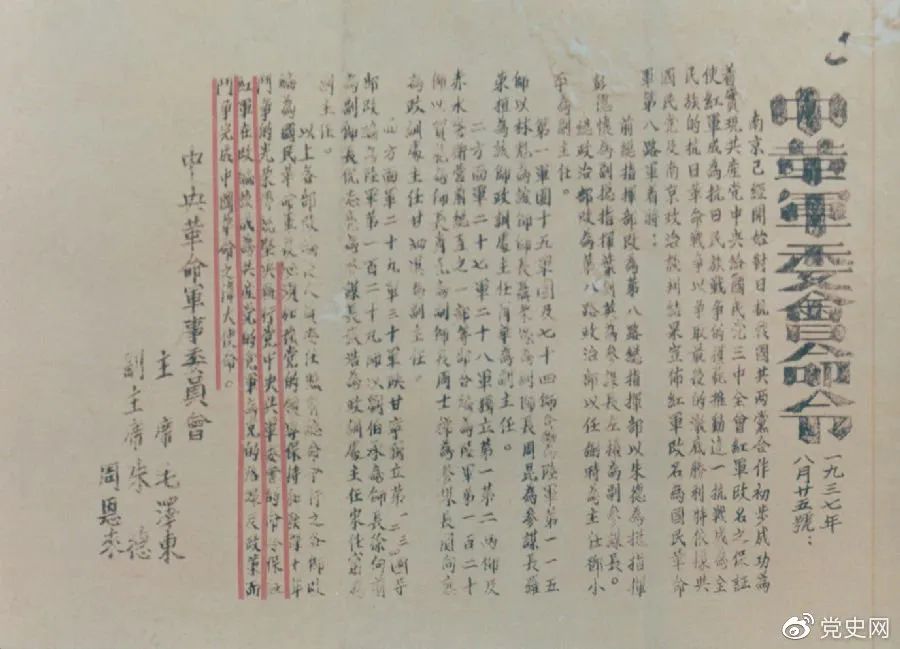 中革軍委會命令
一九三七年
八月廿五號：
南京已經開始對日抗戰國共兩黨合作初步成功為
着實現共產党中央給國民党三中全會紅軍改名之保証
使紅軍成為抗日民族戰争的模範推動這一抗戰成為全
民族的抗日革命戰争以爭取最後的徹底勝利特依據共
國民党及南京政治談判結果宣佈紅軍改名為國民革命
軍第八路軍着將：
前總指揮部改為第八路總指揮部以朱德為總指揮
彭德懷為副總指揮葉劍英為參謀長左權為副參謀長。
總政治部改為第八路政治部以任弼時為主任鄧小
平為副主任。
第一軍團十五軍團及七十四師合編為陸軍第一一五
師以林彪為該師師長聶榮臻為副師長周昆為參謀長羅
榮桓為該師政訓處主任蕭華為副主任。
二方面軍二十七軍二十八軍獨立第一第二兩師及
赤水警衛營前總直之一部等部合編為陸軍第一百二十
師以賀龍為師長蕭克為副師長周士第為參謀長關向應
為政訓處主任甘泗淇為副主任。
四方面軍二十九軍三十軍陝甘寧獨立第一二三四等
部改編為陸軍第一百二十九師以劉伯承為師長徐向前
為副師長倪志亮為參謀長張浩為政訓處主任宋任窮為
副主任。
以上各部改編
編為國民革命軍後必須加強党的領導保持和發揮十年
鬥爭的光榮傳統堅決執行党中央與軍委會的命令保証
紅軍在改編後成為共產党的党軍為党的路線及政策而
鬥争完成中國革命之偉大使命。
中央革命軍事委員會
主席毛澤東
副主席朱德
周恩来
党史网